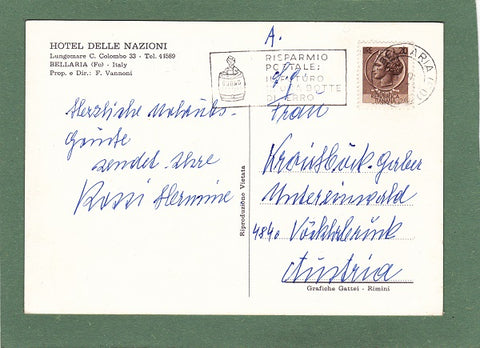 HOTEL DELLE NAZIONI
Lungomare C. Colombo 33 - Tel. 44589
BELLARIA (Fo) - Italy
Prop. e Dir.: F. Vannoni
Herzliche Urlaubs-
Grüße
sendet Ihre
Rossi Hermine
Riproduzione Vietata
A.
RISPARMIO
POSTALE:
IN FUTURO
BOTTE
DI FERRO
BELLARIA
Frau
Kroisböck-Gerber
Untereinwald
4840 Vöcklabruck
Austria
Grafiche Gattei - Rimini